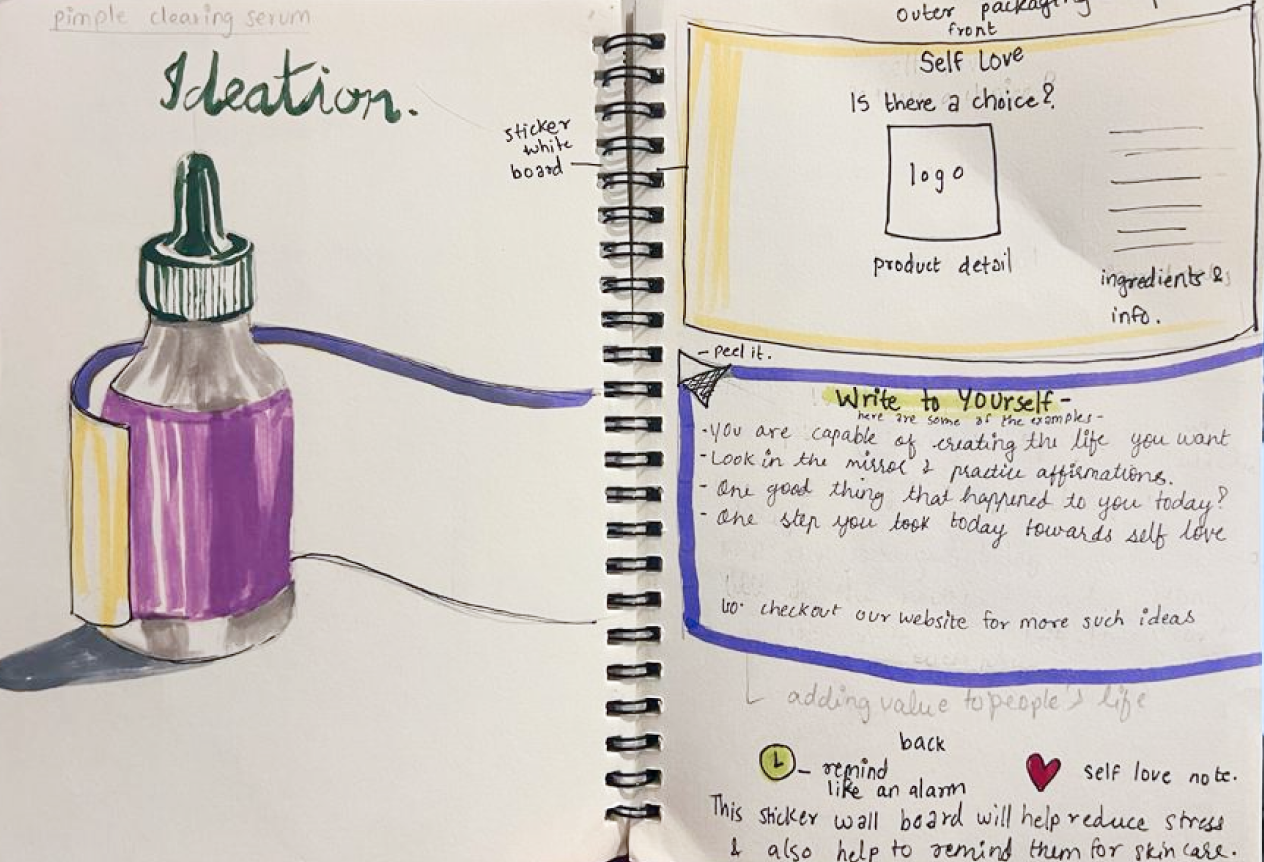 pimple clearing serum
Ideation.
sticker
white
board
outer packaging
front
Self Love
Is there a choice?
logo
product detail
ingredients &
info.
- peel it.
Write to Yourself -
here are some of the examples -
- You are capable of creating the life you want
- Look in the mirror & practice affirmations.
- One good thing that happened to you today?
- One step you took today towards self love
checkout our website for more such ideas
adding value to people's life
back
- remind
like an alarm
self love note.
This sticker wall board will help reduce stress
& also help to remind them for skin care.